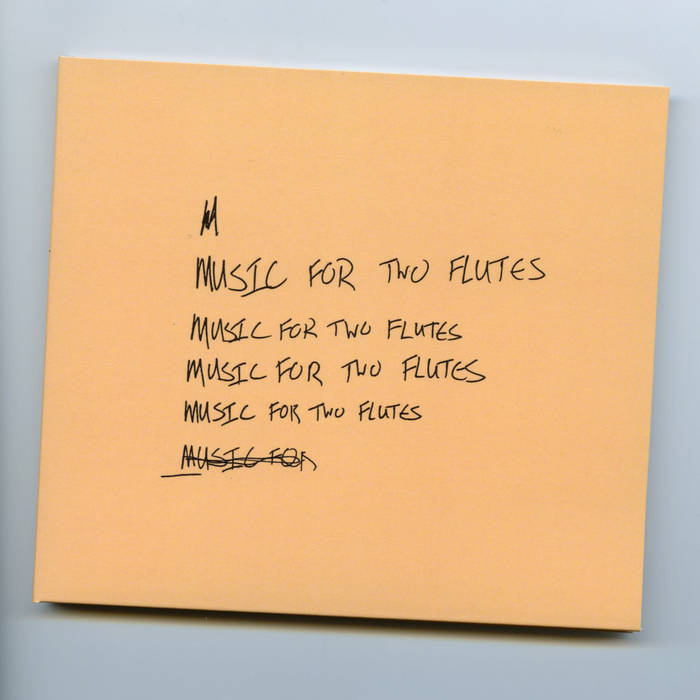 M
MUSIC FOR TWO FLUTES
MUSIC FOR TWO FLUTES
MUSIC FOR TWO FLUTES
MUSIC FOR TWO FLUTES
MUSIC FOR